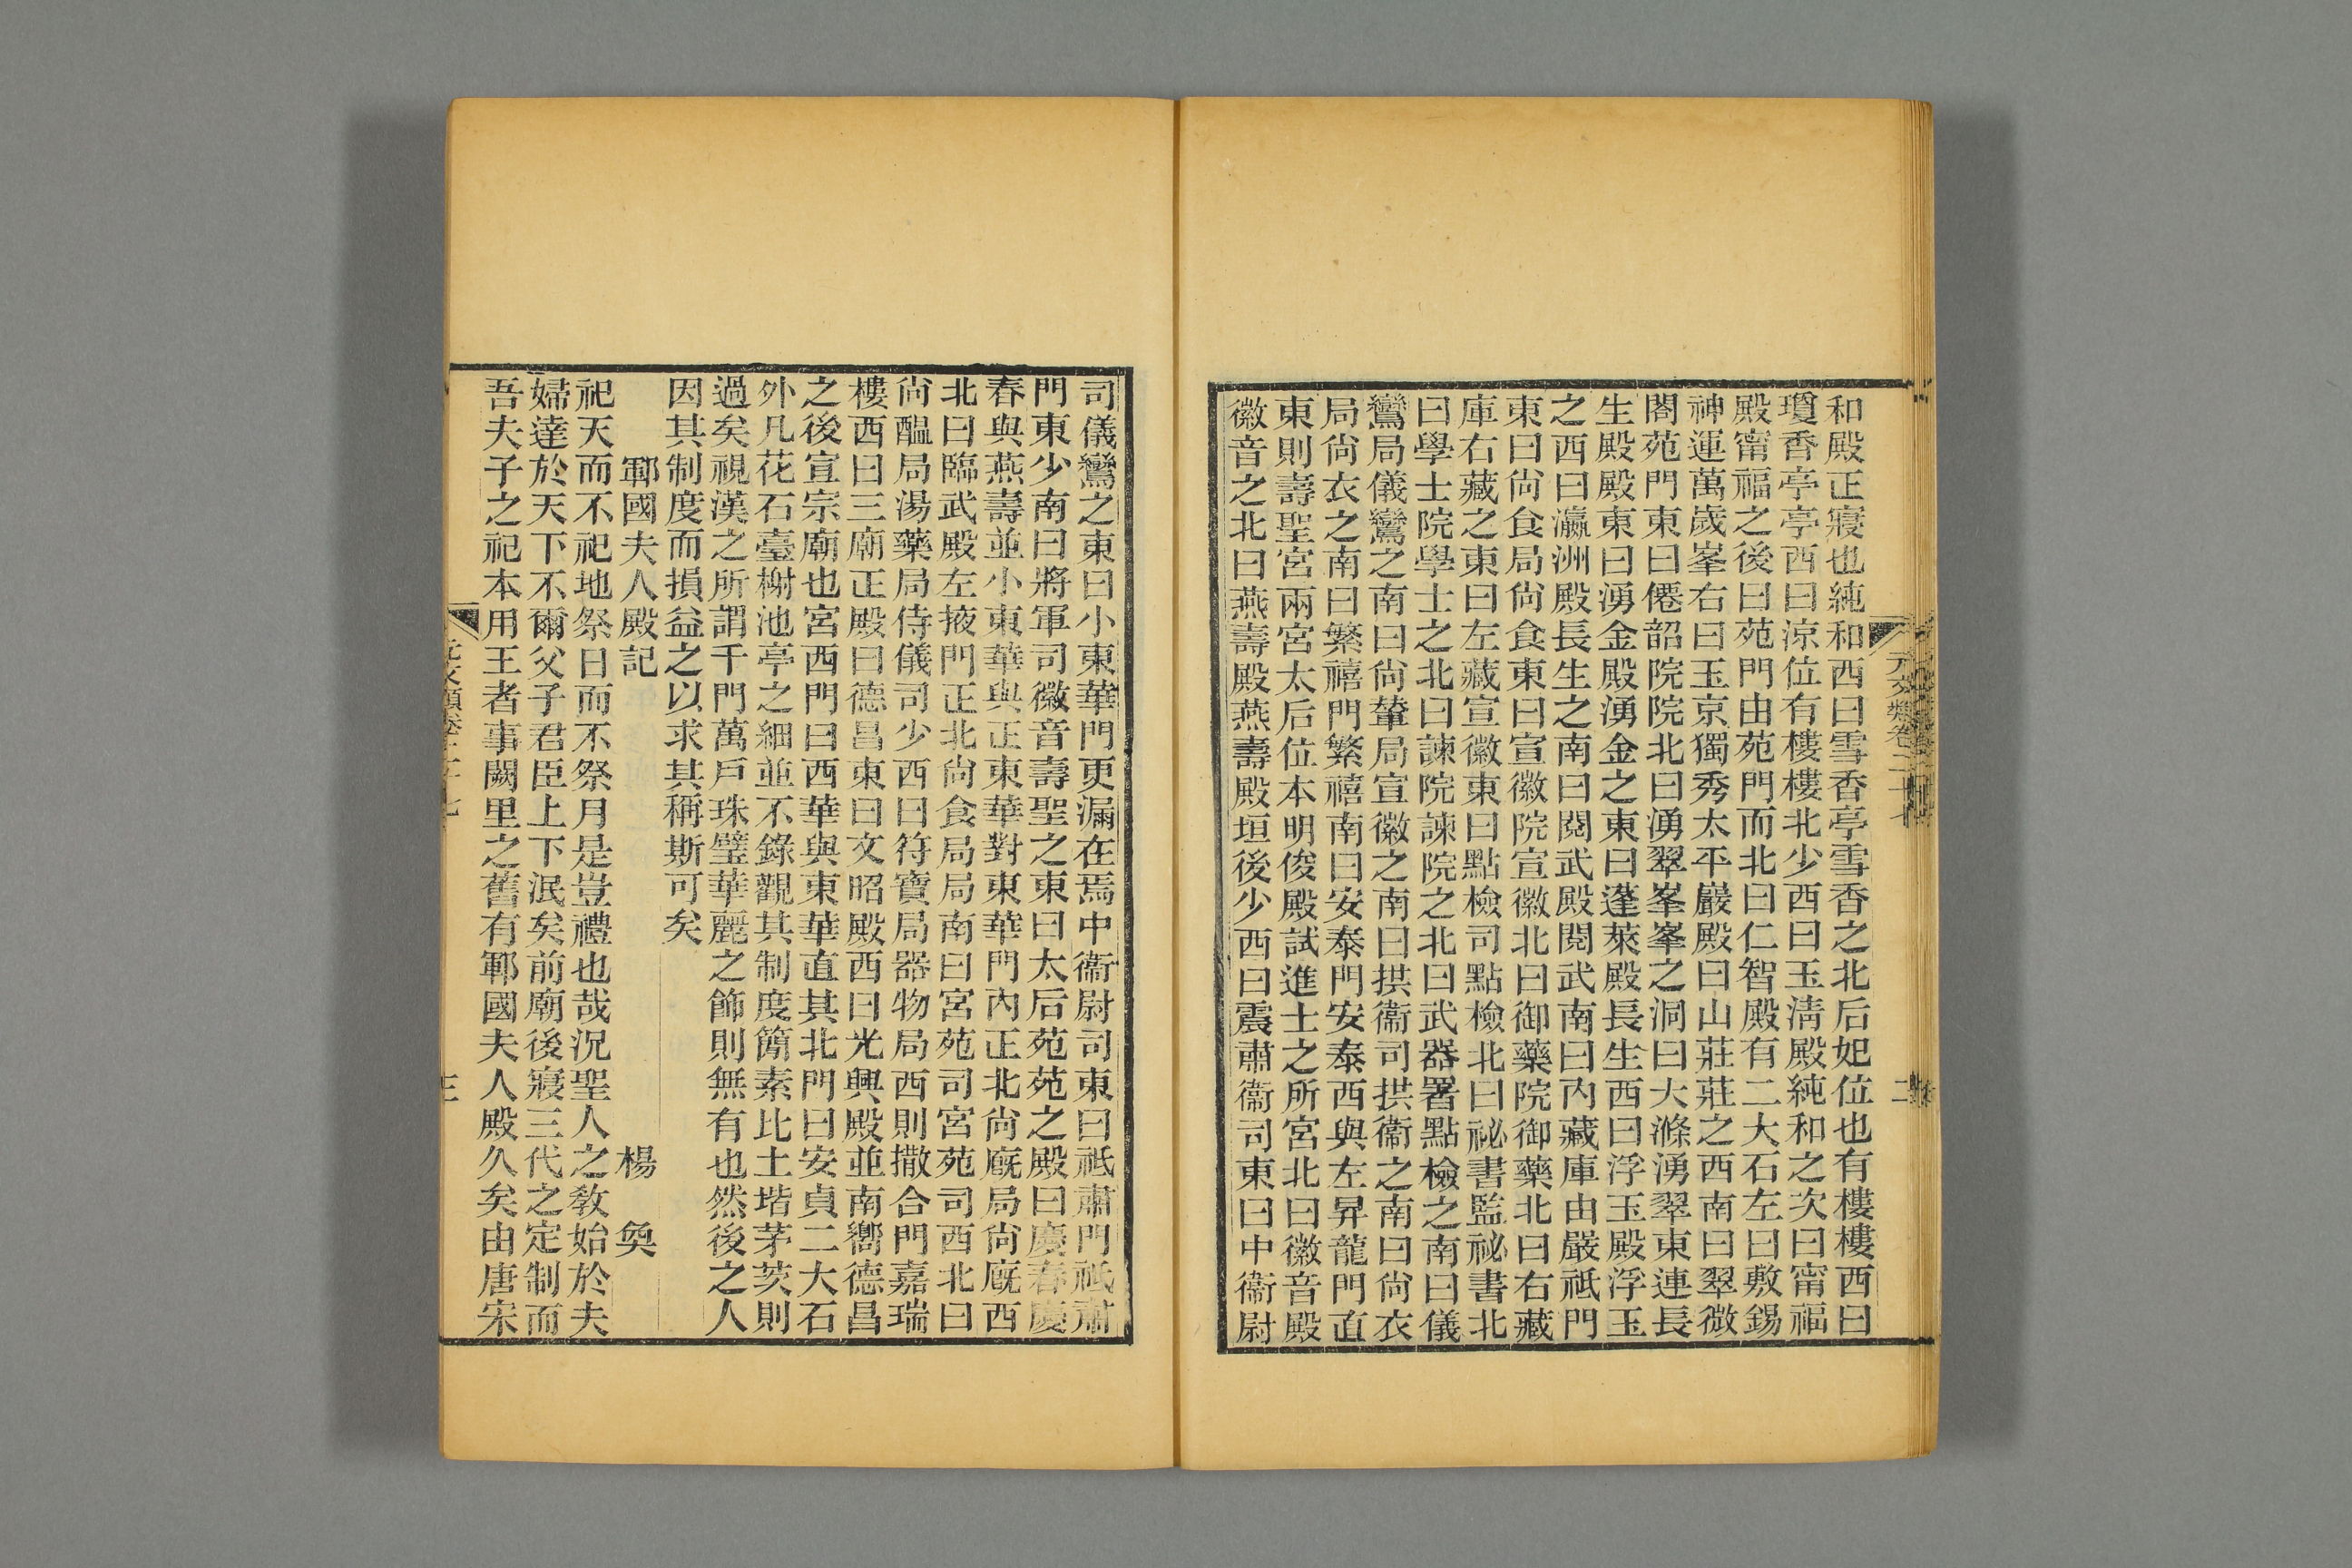 和殿正寢也純和西曰雪香亭雪香之北后妃位也有樓樓西曰
瓊香亭亭西曰涼位有樓樓北少西曰玉淸殿純和之次曰甯福
殿甯福之後曰苑門由苑門而北曰仁智殿有二大石左曰敷錫
神運萬歲峯右曰玉京獨秀太平巖殿曰山莊莊之西南曰翠微
閤苑門東曰僊韶院院北曰湧翠峯峯之洞曰大滌湧翠東連長
生殿殿東曰湧金殿湧金之東曰蓬萊殿長生西曰浮玉殿浮玉
之西曰瀛洲殿長生之南曰閱武殿閱武南曰內藏庫由嚴祗門
東曰尙食局尙食東曰宣徽院宣徽北曰御藥院御藥北曰右藏
庫右藏之東曰左藏宣徽東曰點檢司點檢北曰祕書監祕書北
曰學士院學士之北曰諫院諫院之北曰武器署點檢之南曰儀
鸞局儀鸞之南曰尙輦局宣徽之南曰拱衞司拱衞之南曰尙衣
局尙衣之南曰繁禧門繁禧南曰安泰門安泰西與左昇龍門直
東則壽聖宮兩宮太后位本明俊殿試進士之所宮北曰徽音殿
徽音之北曰燕壽殿燕壽殿垣後少西曰震肅衞司東曰中衞尉
司儀鸞之東曰小東華門更漏在焉中衞尉司東曰祗肅門祗肅
門東少南曰將軍司徽音壽聖之東曰太后苑苑之殿曰慶春慶
春與燕壽並小東華與正東華對東華門內正北尙廐局尙廐西
北曰臨武殿左掖門正北尙食局局南曰宮苑司宮苑司西北曰
尙醞局湯藥局侍儀司少西曰符寶局器物局西則撒合門嘉瑞
樓西曰三廟正殿曰德昌東曰文昭殿西曰光興殿並南嚮德昌
之後宣宗廟也宮西門曰西華與東華直其北門曰安貞二大石
外凡花石臺榭池亭之細並不錄觀其制度簡素比土堦茅茨則
過矣視漢之所謂千門萬戶珠璧華麗之飾則無有也然後之人
因其制度而損益之以求其稱斯可矣
鄆國夫人殿記　楊奐
祀天而不祀地祭日而不祭月是豈禮也哉況聖人之敎始於夫
婦達於天下不爾父子君臣上下泯矣前廟後寢三代之定制而
吾夫子之祀本用王者事闕里之舊有鄆國夫人殿久矣由唐宋
元文類卷三十七
二
三